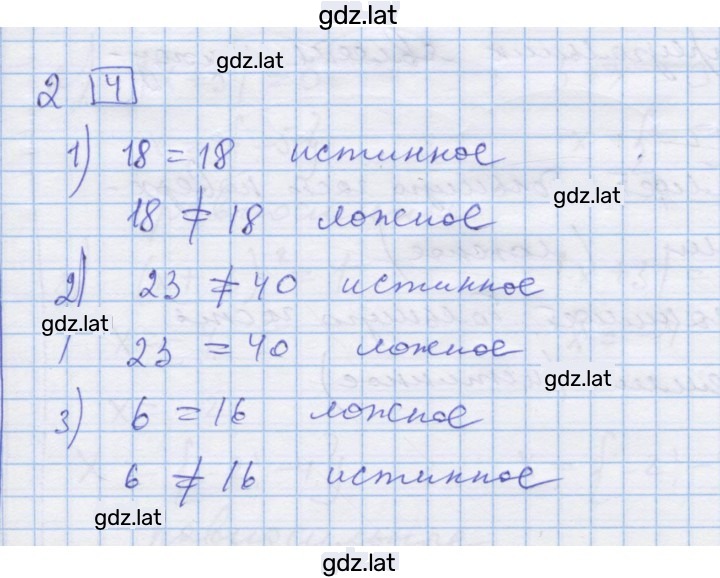 gdz.lat
gdz.lat
2 4
1) 18 = 18 истинное
gdz.lat
18 ≠ 18 ложное
2) 23 ≠ 40 истинное
gdz.lat
23 = 40 ложное
gdz.lat
3) 6 = 16 ложное
6 ≠ 16 истинное
gdz.lat
gdz.lat